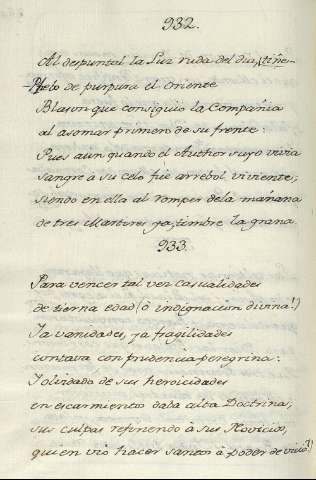 932.
Al despuntar la Luz ruda del dia, tiñe-
-selo de purpura el Oriente
Blason que consiguio la Compañia
al asomar primero de su frente:
Pues aun quando el Author suyo vivia
sangre à su celo fue arrebol viviente;
siendo en ella al romper de la mañana
de tres Martires ya, timbre la grana.
933.
Para vencer tal vez casualidades
de tierna edad (ò indignacion divina!)
Ya vanidades, ya fragilidades
contava con prudencia peregrina:
Y olvidado de sus heroicidades
en escarmiento daba alta Doctrina,
sus culpas refiriendo à sus Novicios,
quien vio hacer santos à poder de vicios?